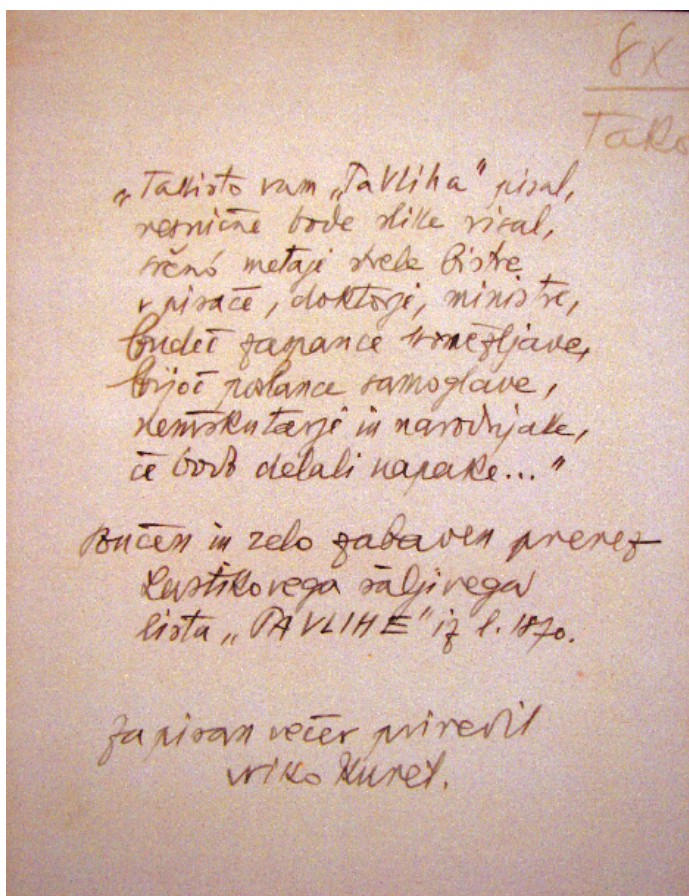 8x
Tako
„Takisto vam „Pavliha" pisal,
resnične bode slike risal,
srčnó metaje strele bistre
v pisače, doktorje, ministre,
budeč zaspance
bijoč poslance samoglave,
nemškutarje in narodnjake,
če bodo delali napake..."
in zelo zabaven prerez
Levstikovega šaljivega
lista „PAVLIHE" iz l. 1870.
Za pisan večer priredil
Niko Kuret.